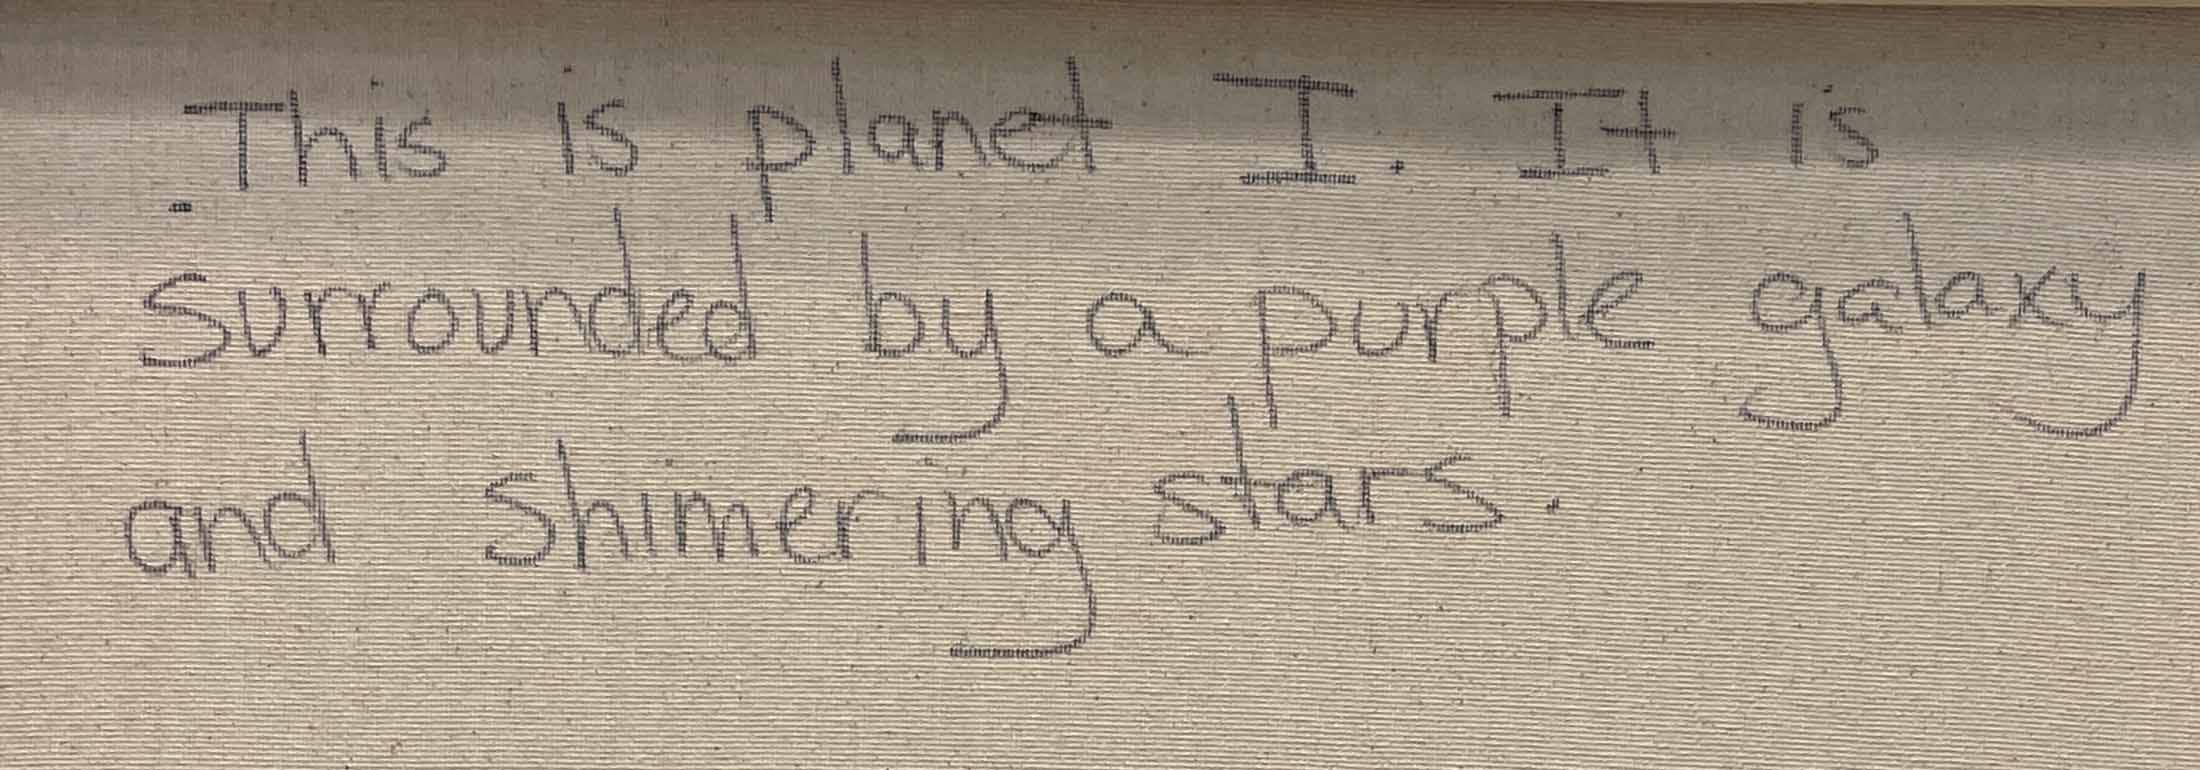 This is planet I. It is
surrounded by a purple galaxy
and shimering stars.